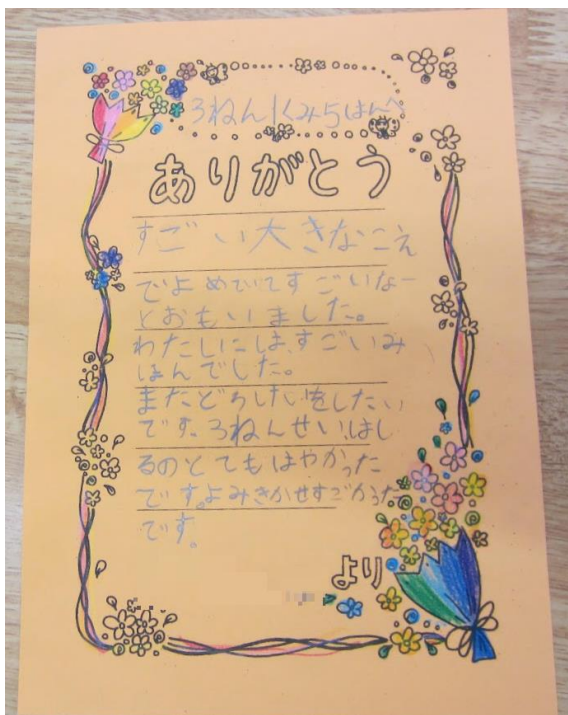 3ねん1くみ5はんへ
ありがとう
すごい大きなこえ
でよめていてすごいなー
とおもいました。
わたしにはすごいみ
ほんでした。
またどうけいをしたい
です。3ねんせいはし
るのとてもはやかった
です。よみきかせすごかった
です。
より